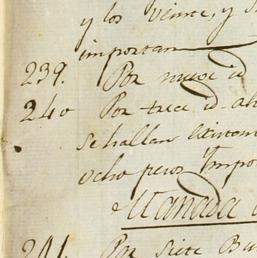 y los veinte, y
importan
239. Por nueve id
240 Por trece id. 
se hallan 
ocho pesos Impo
Manada
241. Por siete Bu